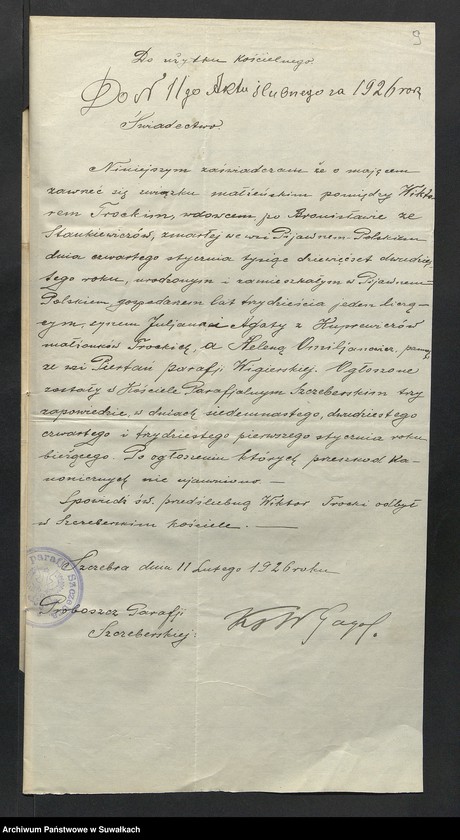 9
Do użytku kościelnego.
Do № 11go Aktu ślubnego za 1926 rok
Świadectwo.
Niniejszym zaświadczam że o mającem
zawrzeć się związku małżeńskim pomiędzy Wikto
rem Trockim, wdowcem po Bronisławie ze
Stankiewiczów, zmarłej we wsi Pijawnem-Polskiem
dnia czwartego stycznia tysiąc dziewięćset dwudzies
tego roku, urodzonym i zamieszkałym w Pijawnem
Polskiem gospodarzem lat trzydzieścia jeden liczą-
cym, synem Juljana i Agaty z Kuprewiczów
małżonków Trockich, a Heleną Omiljanowicz, panną
ze wsi Piertań parafji Wigierskiej. Ogłoszone
zostały w Kościele Parafjalnym Szczeberskim trzy
zapowiedzie, w dniach siedemnastego, dwudziestego
czwartego i trzydziestego pierwszego stycznia roku
bieżącego. Po ogłoszeniu których przeszkod Ka-
nonicznych nie ujawniono. —
Spowiedź św. przedślubną Wiktor Trocki odbył
w Szczeberskim kościele. —
Szczebra dnia 11 Lutego 1926 roku
Proboszcz Parafji
Szczeberskiej:
Archiwum Państwowe w Suwałkach